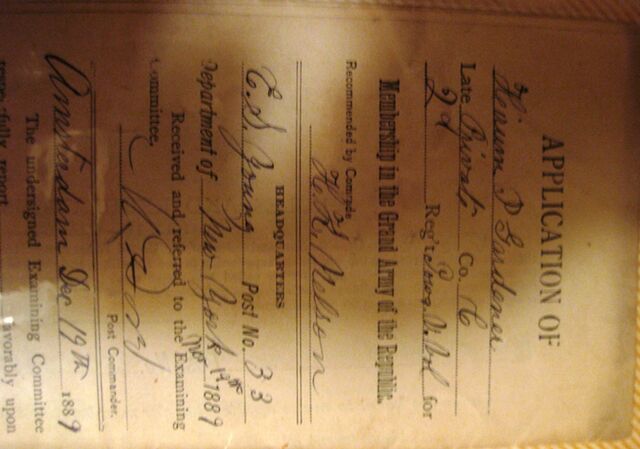 APPLICATION OF
Hiram P Gardener
Late Privat Co. C
2d Reg't Vol for
Membership in the Grand Army of the Republic.
Recommended by Comrade
H. H. Nelson
HEADQUARTERS
E. S. Young Post No. 33
Department of New York Nov 19th 1889
Received and referred to the Examining
Committee.
Post Commander.
Amsterdam Dec 19th 1889
The undersigned Examining Committee
favorably upon